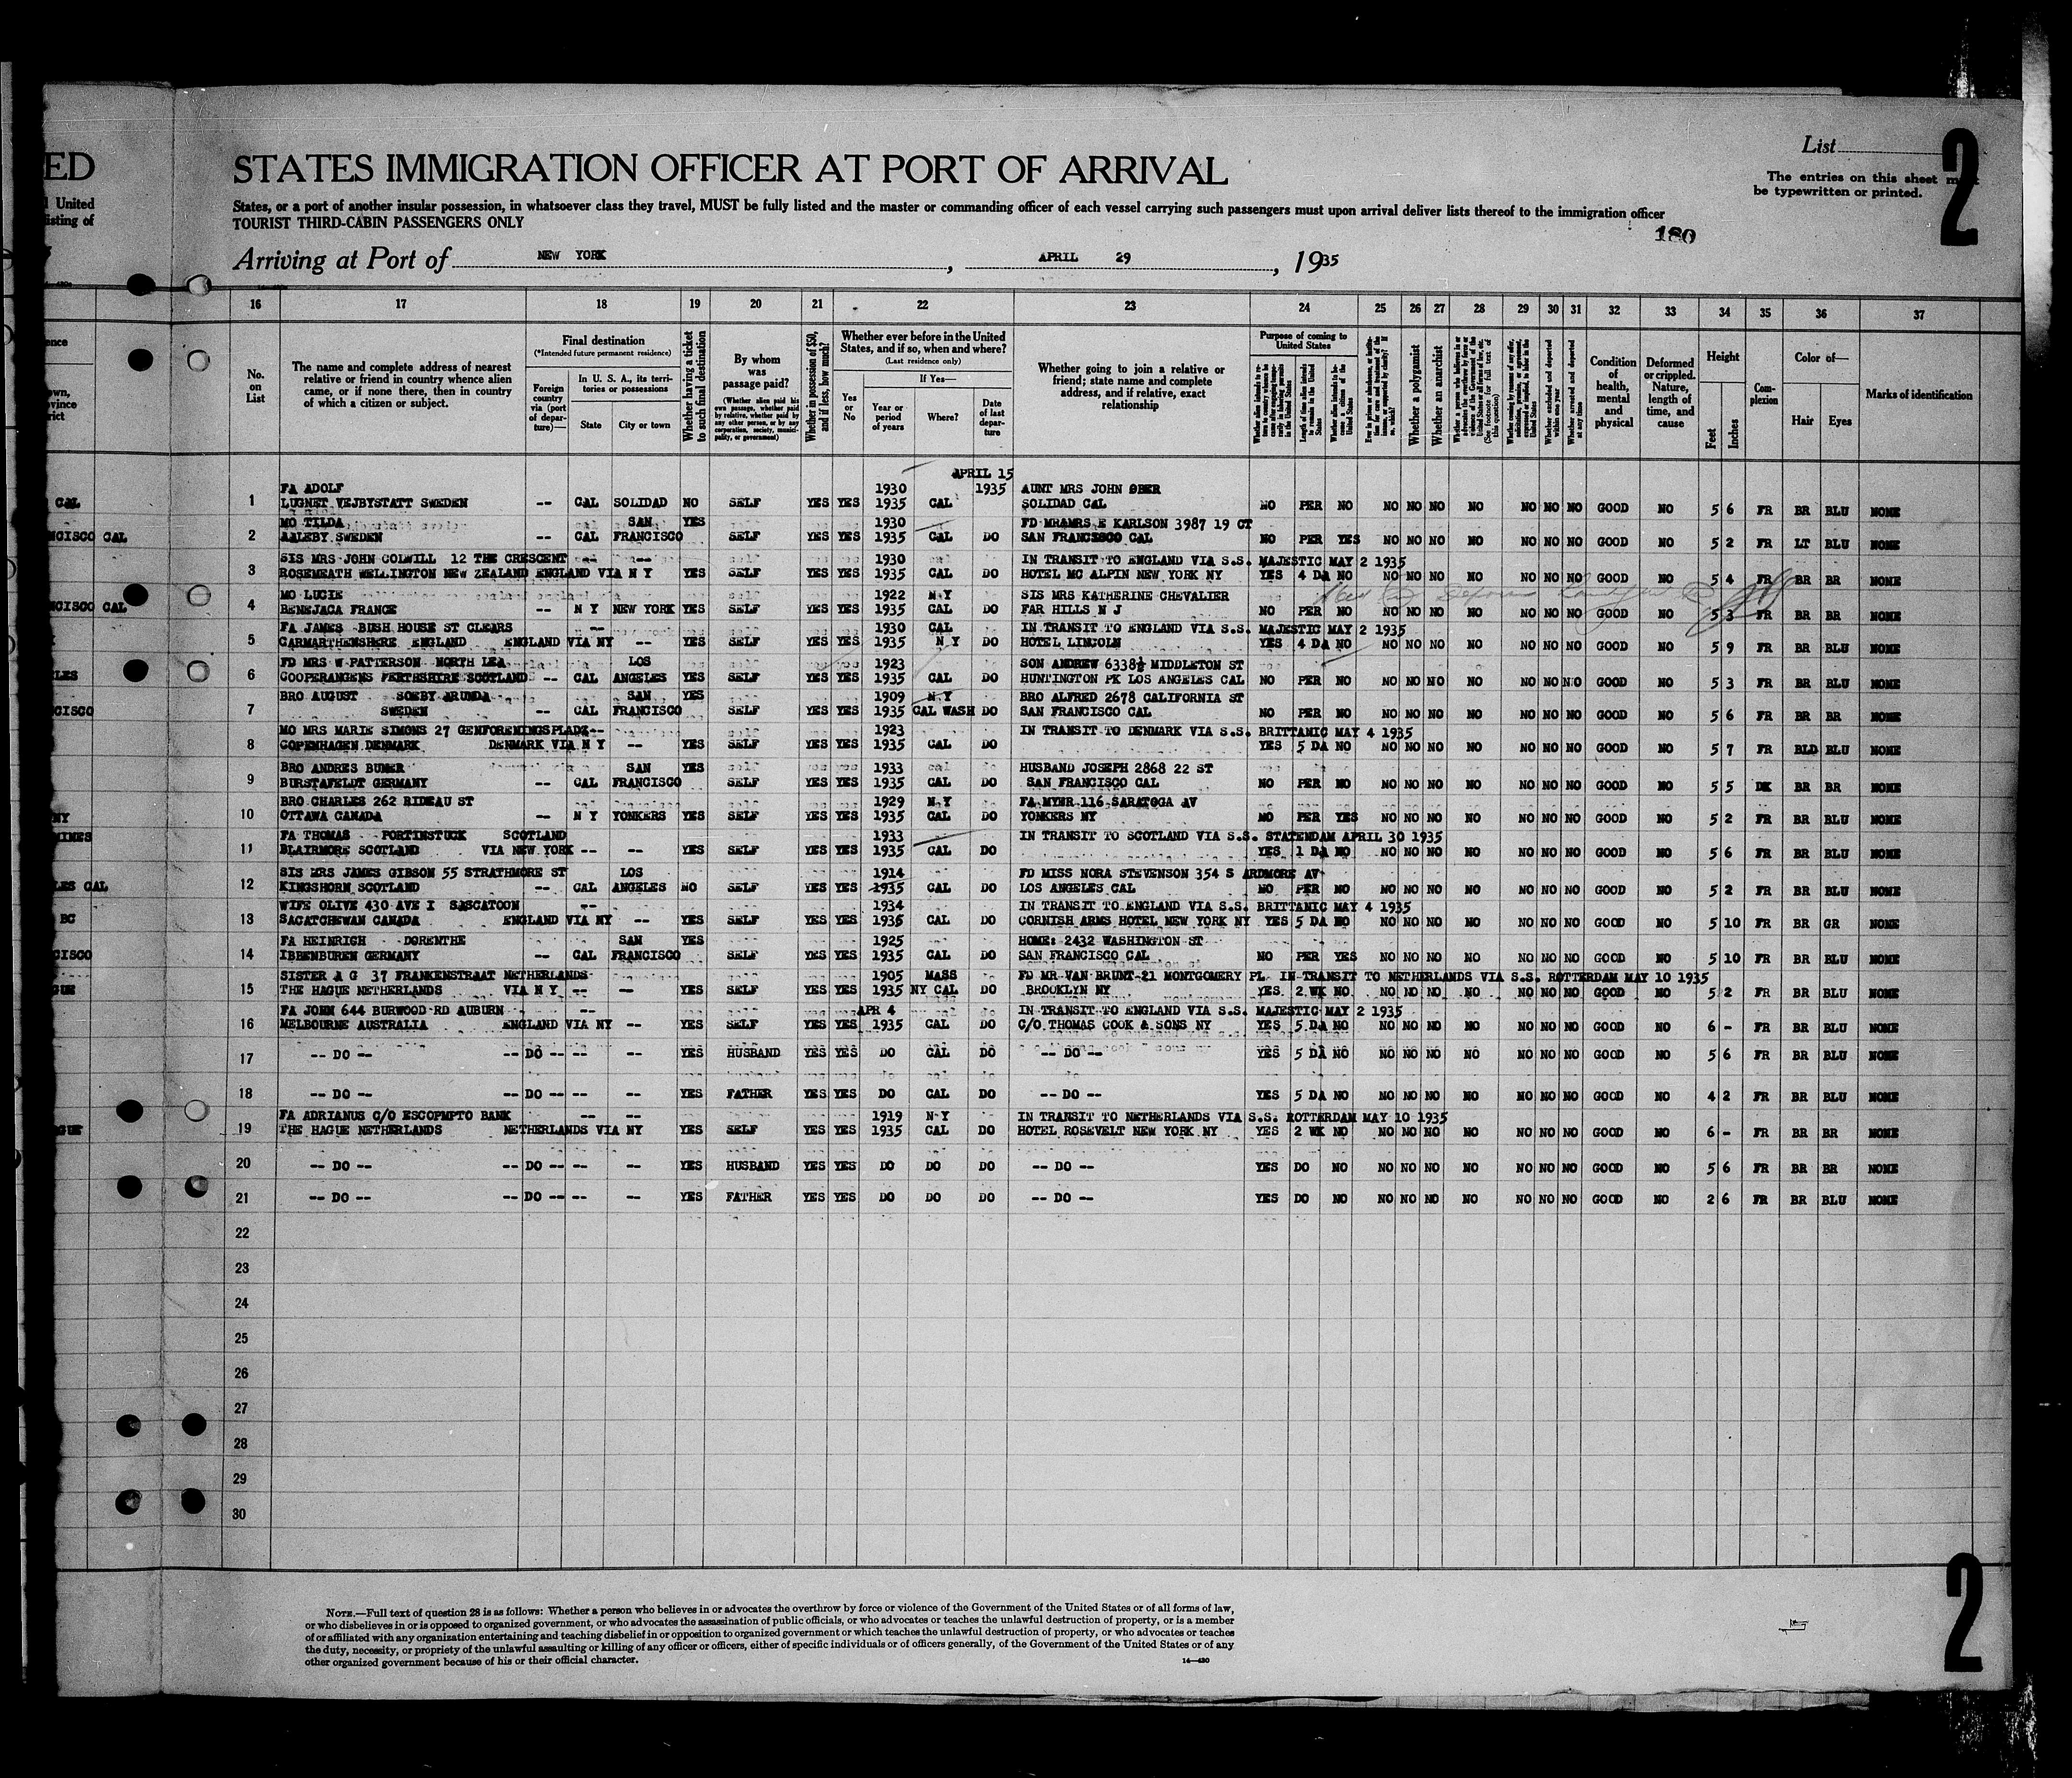 ED
l United
isting of
STATES IMMIGRATION OFFICER AT PORT OF ARRIVAL
List
2
The entries on this sheet must
be typewritten or printed.
States, or a port of another insular possession, in whatsoever class they travel, MUST be fully listed and the master or commanding officer of each vessel carrying such passengers must upon arrival deliver lists thereof to the immigration officer
TOURIST THIRD-CABIN PASSENGERS ONLY
180
Arriving at Port of NEW YORK, APRIL 29, 1935
16 17 18 19 20 21 22 23 24 25 26 27 28 29 30 31 32 33 34 35 36 37
No. on List
The name and complete address of nearest relative or friend in country whence alien came, or if none there, then in country of which a citizen or subject.
Final destination
(*Intended future permanent residence)
Foreign country via (port of departure)—
In U. S. A., its territories or possessions
State
City or town
Whether having a ticket to such final destination
By whom was passage paid?
(Whether alien paid his own passage, whether paid by relative, whether paid by any other person, or by any corporation, society, municipality, or government)
Whether in possession of $50, and if less, how much?
Whether ever before in the United States, and if so, when and where?
(Last residence only)
Yes or No
If Yes—
Year or period of years
Where?
Date of last departure
Whether going to join a relative or friend; state name and complete address, and if relative, exact relationship
Purpose of coming to United States
Whether a polygamist
Whether an anarchist
Condition of health, mental and physical
Deformed or crippled. Nature, length of time, and cause
Height
Feet
Inches
Complexion
Color of—
Hair
Eyes
Marks of identification
APRIL 15
FA ADOLF 1930 1935 AUNT MRS JOHN OBER
CAL 1 LUGNET VEJBYSTATT SWEDEN -- CAL SOLIDAD NO SELF YES YES 1935 CAL SOLIDAD CAL NO PER NO NO NO NO NO NO NO NO GOOD NO 5 6 FR BR BLU NONE
MO TILDA SAN YES 1930 FD MRAMRS E KARLSON 3987 19 CT
NCISCO CAL 2 AALEBY SWEDEN -- CAL FRANCISCO SELF YES YES 1935 CAL DO SAN FRANCISCO CAL NO PER YES NO NO NO NO NO NO NO GOOD NO 5 2 FR LT BLU NONE
SIS MRS JOHN COLWILL 12 THE CRESCENT -- -- 1930 IN TRANSIT TO ENGLAND VIA S.S. MAJESTIC MAY 2 1935
3 ROSEMEATH WELLINGTON NEW ZEALAND ENGLAND VIA N Y YES SELF YES YES 1935 CAL DO HOTEL MC ALPIN NEW YORK NY YES 4 DA NO NO NO NO NO NO NO NO GOOD NO 5 4 FR BR BR NONE
MO LUCIE 1922 N Y SIS MRS KATHERINE CHEVALIER
NCISCO CAL 4 BENEJACA FRANCE -- N Y NEW YORK YES SELF YES YES 1935 CAL DO FAR HILLS N J NO PER NO NO NO NO NO NO NO NO GOOD NO 5 3 FR BR BR NONE
FA JAMES BUSH HOUSE ST CLEARS -- 1930 CAL IN TRANSIT TO ENGLAND VIA S.S. MAJESTIC MAY 2 1935
5 CARMARTHENSHERE ENGLAND ENGLAND VIA NY -- YES SELF YES YES 1935 N Y DO HOTEL LINCOLN YES 4 DA NO NO NO NO NO NO NO NO GOOD NO 5 9 FR BR BLU NONE
FD MRS W PATTERSON NORTH LEA LOS 1923 SON ANDREW 6338½ MIDDLETON ST
LES 6 COOPERANGENS PERTHSHIRE SCOTLAND -- CAL ANGELES YES SELF YES YES 1935 CAL DO HUNTINGTON PK LOS ANGELES CAL NO PER NO NO NO NO NO NO NO NO GOOD NO 5 3 FR BR BLU NONE
BRO AUGUST SOEBY ARUNDA SAN YES 1909 N Y BRO ALFRED 2678 CALIFORNIA ST
CISCO 7 SWEDEN -- CAL FRANCISCO SELF YES YES 1935 CAL WASH DO SAN FRANCISCO CAL NO PER NO NO NO NO NO NO NO NO GOOD NO 5 6 FR BR BR NONE
MO MRS MARIE SIMONS 27 GENFORENINGSPLADZ-- 1923 IN TRANSIT TO DENMARK VIA S.S. BRITTANIC MAY 4 1935
8 COPENHAGEN DENMARK DENMARK VIA N Y -- YES SELF YES YES 1935 CAL DO YES 5 DA NO NO NO NO NO NO NO NO GOOD NO 5 7 FR BLD BLU NONE
BRO ANDRES BUMER SAN YES 1933 HUSBAND JOSEPH 2868 22 ST
9 BURSTAFELDT GERMANY -- CAL FRANCISCO SELF YES YES 1935 CAL DO SAN FRANCISCO CAL NO PER NO NO NO NO NO NO NO NO GOOD NO 5 5 DK BR BR NONE
BRO CHARLES 262 RIDEAU ST 1929 N Y FA MYNR 116 SARATOGA AV
NY 10 OTTAWA CANADA -- N Y YONKERS YES SELF YES YES 1935 CAL DO YONKERS NY NO PER YES NO NO NO NO NO NO NO GOOD NO 5 2 FR BR BLU NONE
FA THOMAS PORTINSTUCK SCOTLAND 1933 IN TRANSIT TO SCOTLAND VIA S.S. STATENDAM APRIL 30 1935
11 BLAIRMORE SCOTLAND VIA NEW YORK -- -- YES SELF YES YES 1935 CAL DO YES 1 DA NO NO NO NO NO NO NO NO GOOD NO 5 6 FR BR BLU NONE
SIS MRS JAMES GIBSON 55 STRATHMORE ST LOS 1914 FD MISS NORA STEVENSON 354 S ARDMORE AV
LES CAL 12 KINGSHORN SCOTLAND -- CAL ANGELES NO SELF YES YES 1935 CAL DO LOS ANGELES CAL NO PER NO NO NO NO NO NO NO NO GOOD NO 5 2 FR BR BLU NONE
WIFE OLIVE 430 AVE I SASCATOON -- 1934 IN TRANSIT TO ENGLAND VIA S.S. BRITTANIC MAY 4 1935
BC 13 SACATCHEWAN CANADA ENGLAND VIA NY -- YES SELF YES YES 1935 CAL DO CORNISH ARMS HOTEL NEW YORK NY YES 5 DA NO NO NO NO NO NO NO NO GOOD NO 5 10 FR BR GR NONE
FA HEINRICH DORENTHE SAN YES 1925 HOME: 2432 WASHINGTON ST
CISCO 14 IBBENBUREN GERMANY -- CAL FRANCISCO SELF YES YES 1935 CAL DO SAN FRANCISCO CAL NO PER YES NO NO NO NO NO NO NO GOOD NO 5 10 FR BR BLU NONE
SISTER A G 37 FRANKENSTRAAT NETHERLANDS 1905 MASS FD MR VAN BRUNT 21 MONTGOMERY PL IN TRANSIT TO NETHERLANDS VIA S.S. ROTTERDAM MAY 10 1935
GUE 15 THE HAGUE NETHERLANDS VIA N Y -- -- YES SELF YES YES 1935 NY CAL DO BROOKLYN NY YES 2 WK NO NO NO NO NO NO NO NO GOOD NO 5 2 FR BR BLU NONE
FA JOHN 644 BURWOOD RD AUBURN -- APR 4 IN TRANSIT TO ENGLAND VIA S.S. MAJESTIC MAY 2 1935
16 MELBOURNE AUSTRALIA ENGLAND VIA NY -- YES SELF YES YES 1935 CAL DO C/O THOMAS COOK & SONS NY YES 5 DA NO NO NO NO NO NO NO NO GOOD NO 6 - FR BR BLU NONE
17 -- DO -- -- DO -- -- -- YES HUSBAND YES YES DO CAL DO -- DO -- YES 5 DA NO NO NO NO NO NO NO NO GOOD NO 5 6 FR BR BLU NONE
18 -- DO -- -- DO -- -- -- YES FATHER YES YES DO CAL DO -- DO -- YES 5 DA NO NO NO NO NO NO NO NO GOOD NO 4 2 FR BR BLU NONE
FA ADRIANUS C/O ESCOPMPTO BANK -- -- 1919 N Y IN TRANSIT TO NETHERLANDS VIA S.S. ROTTERDAM MAY 10 1935
GUE 19 THE HAGUE NETHERLANDS NETHERLANDS VIA NY YES SELF YES YES 1935 CAL DO HOTEL ROSEVELT NEW YORK NY YES 2 WK NO NO NO NO NO NO NO NO GOOD NO 6 - FR BR BR NONE
20 -- DO -- -- DO -- -- -- YES HUSBAND YES YES DO DO DO -- DO -- YES DO NO NO NO NO NO NO NO NO GOOD NO 5 6 FR BR BR NONE
21 -- DO -- -- DO -- -- -- YES FATHER YES YES DO DO DO -- DO -- YES DO NO NO NO NO NO NO NO NO GOOD NO 2 6 FR BR BLU NONE
22
23
24
25
26
27
28
29
30
NOTE.—Full text of question 28 is as follows: Whether a person who believes in or advocates the overthrow by force or violence of the Government of the United States or of all forms of law,
or who disbelieves in or is opposed to organized government, or who advocates the assassination of public officials, or who advocates or teaches the unlawful destruction of property, or is a member
of or affiliated with any organization entertaining and teaching disbelief in or opposition to organized government or which teaches the unlawful destruction of property, or who advocates or teaches
the duty, necessity, or propriety of the unlawful assaulting or killing of any officer or officers, either of specific individuals or of officers generally, of the Government of the United States or of any
other organized government because of his or their official character.
14—430
2